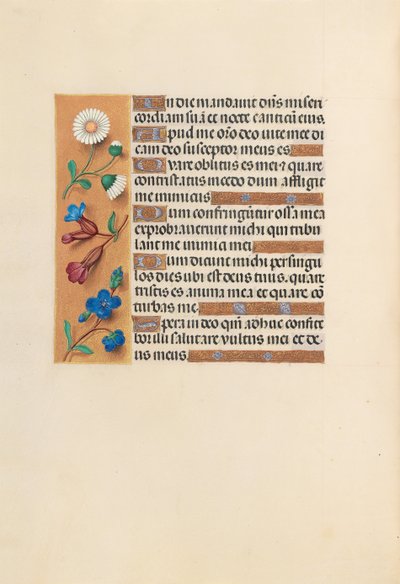 In die mandavit dn̄s miseri
cordiam suā et nocte canticū eius.
Apud me orō deo vite mee di
cam deo susceptor meus es.
Quare oblitus es mei et quare
contristatus incedo dum affligit
me inimicus
Dum confringūtur ossa mea
exprobraverunt michi qui tribu
lant me inimici mei
Dum dicunt michi per singu
los dies ubi est deus tuus. quare
tristis es anima mea et quare cō
turbas me.
Spera in deo qm̄ adhuc confite
bor illi salutare vultus mei et de
us meus.